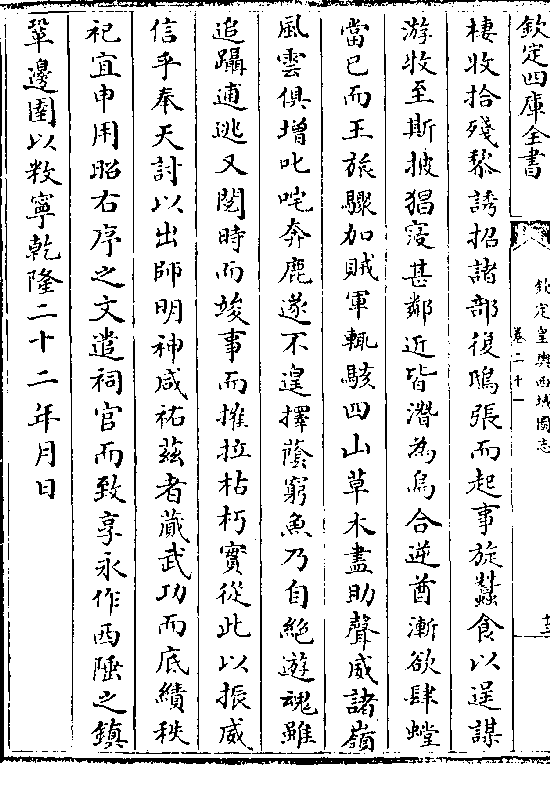 欽定四庫全書
欽定皇輿西域圖志
卷二十一
十三
棲收拾殘黎誘招諸部復鴟張而起事旋蠶食以逞謀
游牧至斯披猖寖甚鄰近皆潛為烏合逆酋漸欲肆螳
當已而王旅驟加賊軍輒駭四山草木盡助聲威諸嶺
風雲俱增叱咤奔鹿遂不遑擇蔭窮魚乃自絕遊魂雖
追躡逋逃又閱時而竣事而摧拉枯朽實從此以振威
信乎奉天討以出師明神咸祐茲者蕆武功而底績秩
祀宜申用昭右序之文遣祠官而致享永作西陲之鎮
鞏邊圉以敉寧乾隆二十二年月日